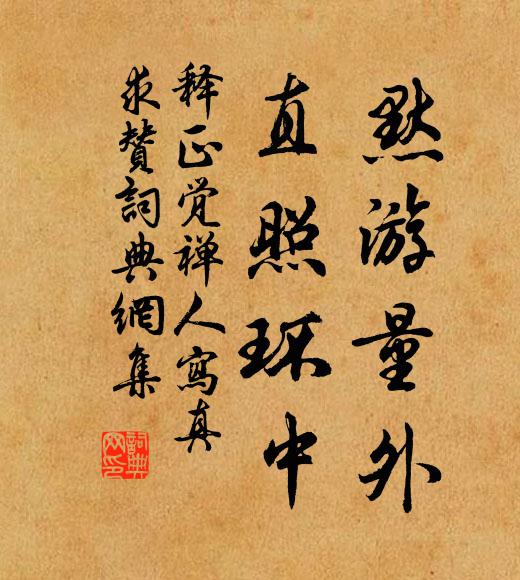 默游量外
直照环中
释正觉禅人寫真
求贊詞典網集
詞典网印